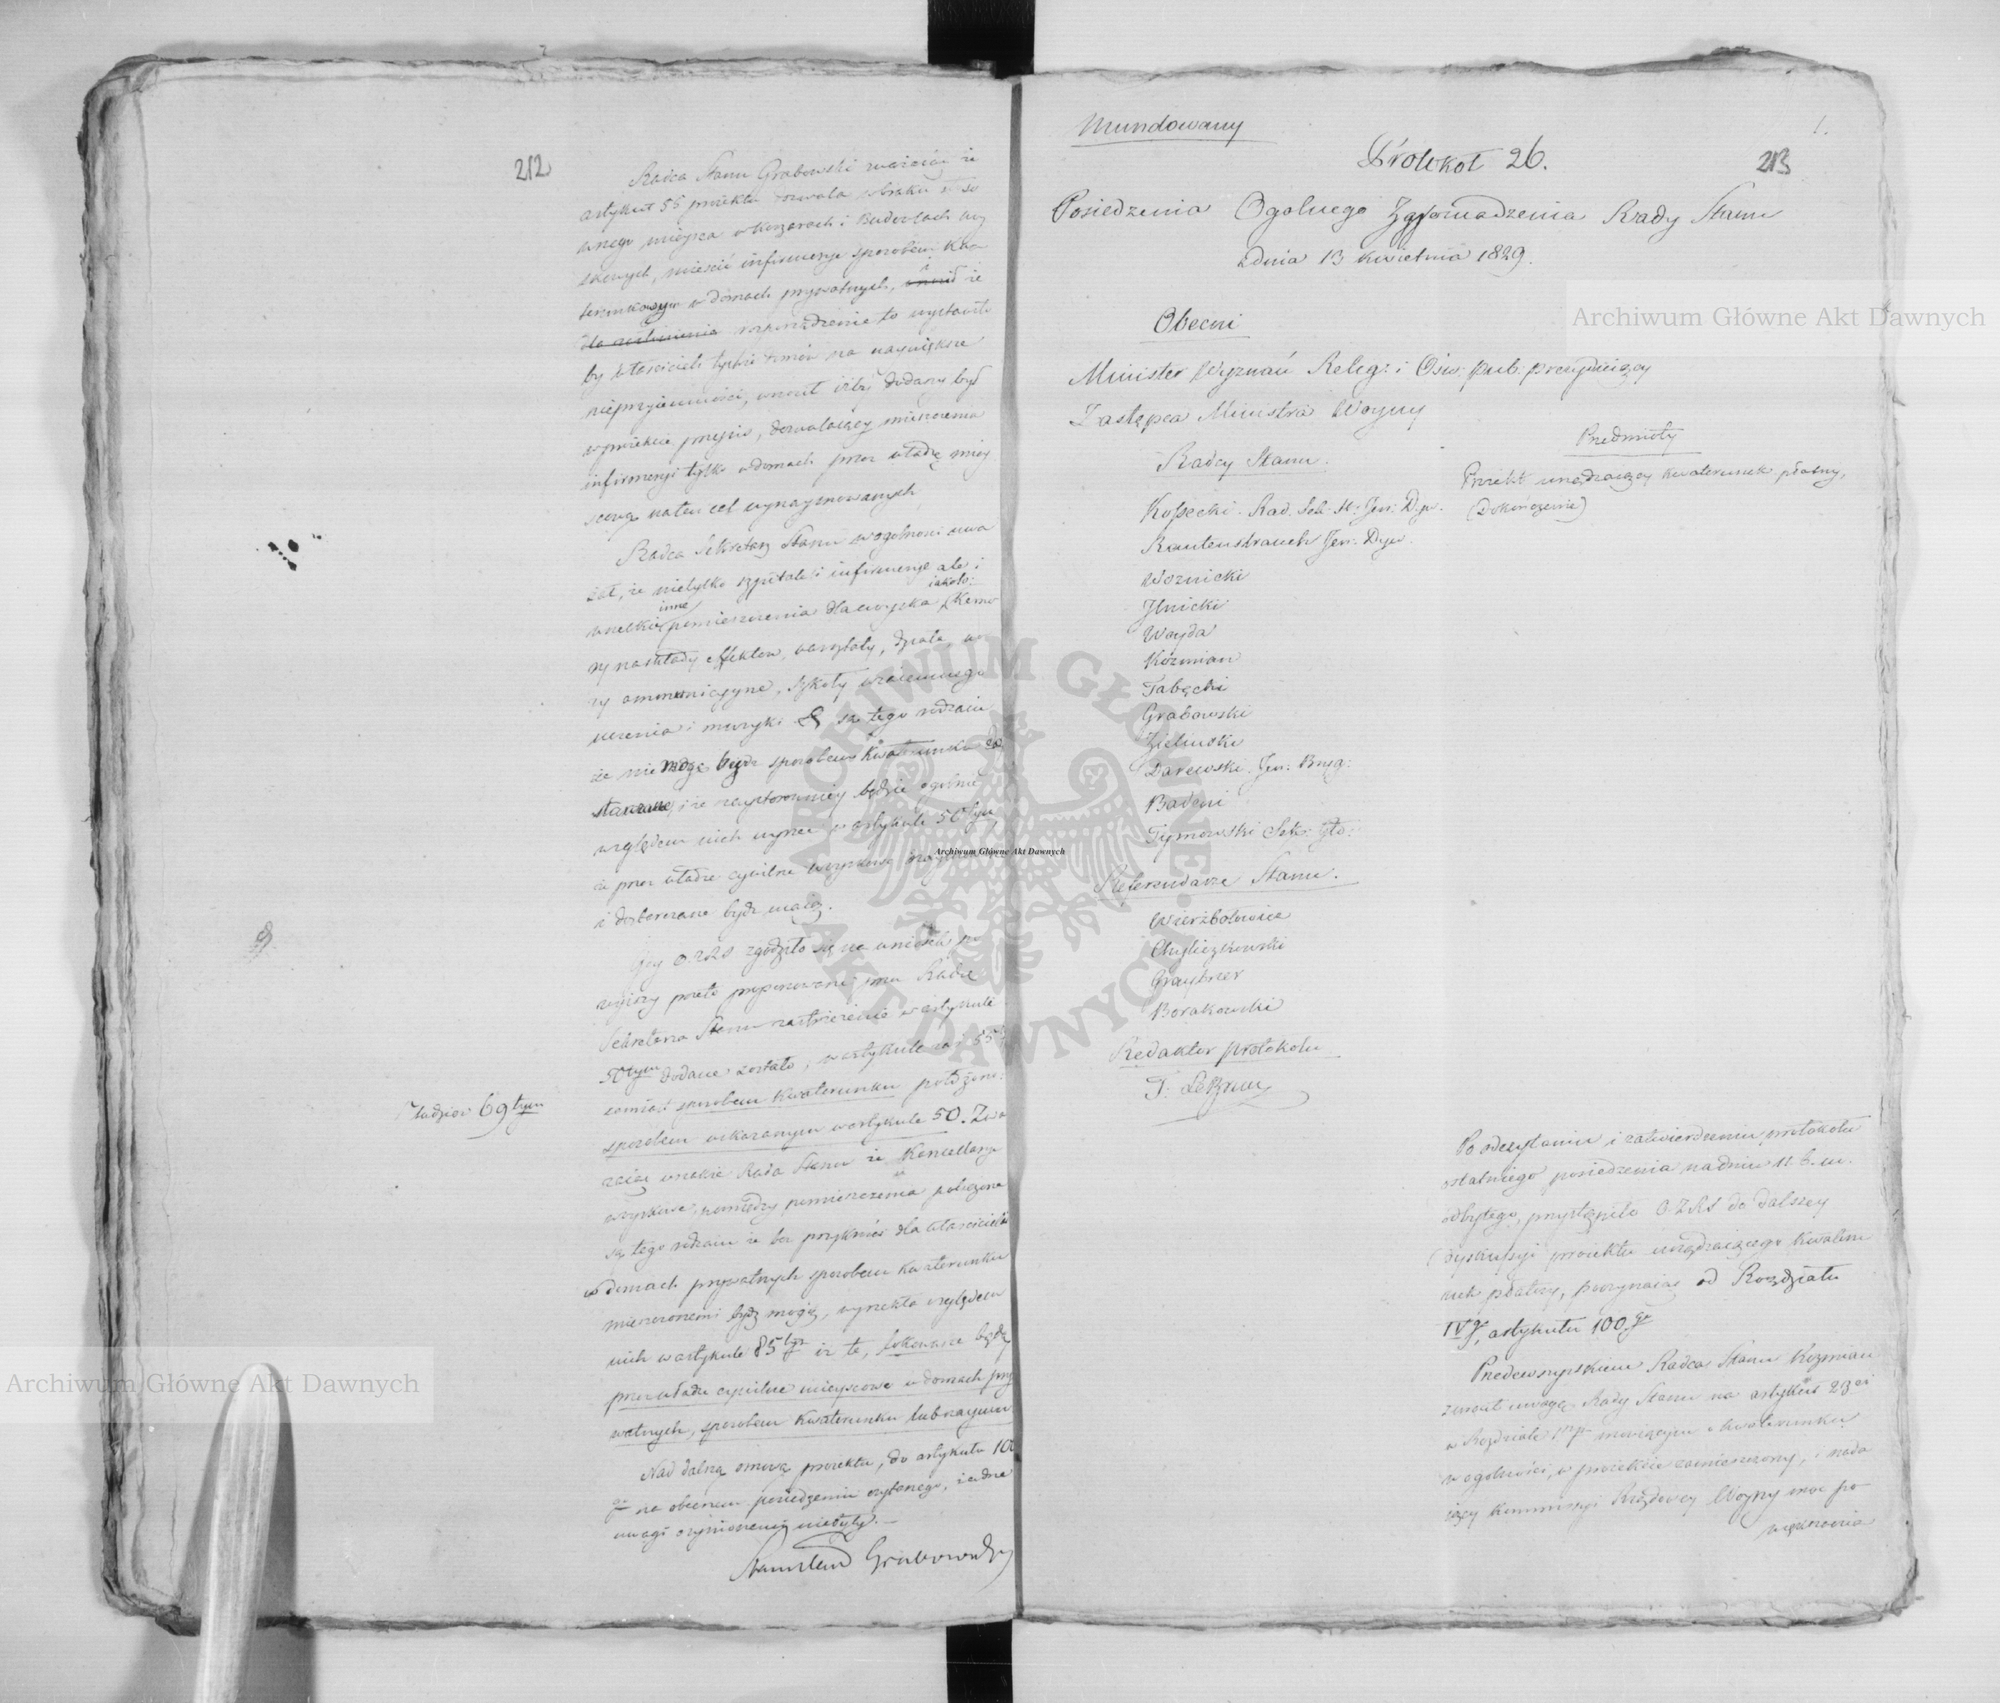 212
Radca Stanu Grabowski zważaiąc że
artykuł 55 proiektu dozwala w braku sto
wnego mieysca w koszarach i Budowlach woy
skowych, mieścić infirmerye sposobem kwa
terunkowym w domach prywatnych, i że
dla rozporządzenie to wystawiło
by właścicieli tychże domów na naywiększe
nieprzyiemności, wnosił iżby dodany był
w proiekcie przepis, dozwalaiący mieszczenia
infirmeryi tylko w domach przez władzę miey
scową na ten cel wynaymowanych.
Radca Sekretarz Stanu w ogólności uwa
żał, że nietylko szpitale i infirmerye ale i
wszelkie inne pomieszczenia dla woyska, iakoto: Kamo
ry na składy effektów, warsztaty, działa, wo
zy ammunicyyne, szkoły wzaiemnego
uczenia i muzyki & są tego rodzaiu
że nie mogą bydź sposobem kwaterunku do
starczane, i że naystosowniey będzie ogólnie
względem nich wyrzec w artykule 50tym
że przez władze cywilne woyskową
i dostarczane bydź maią.
Gdy O.Z.R.S zgodziło się na wniosek po
wyższy przeto proponowane przez Radcę
Sekretarza Stanu zastrzeżenie w artykule
50tym dodane zostało, w artykule zaś 55
zamiast sposobem kwaterunku położono:
sposobem wskazanym w artykule 50. Zwa
żaiąc wreszcie Rada Stanu że Kancellarye
woyskowe, pomiędzy pomieszczenia policzone
są tego rodzaiu że bez przykrości dla właścicieli
w domach prywatnych sposobem kwaterunku
mieszczonemi bydź mogą, wyrzekła względem
nich w artykule 85tym iż te, lokowane będą
przez władze cywilne mieyscowe w domach pry
watnych, sposobem kwaterunku lub naymu
Nad dalszą osnową proiektu, do artykułu 100
go na obecnem posiedzeniu czytanego, żadne
uwagi czynionemi nie były.
Stanisław Grabowski
Radziow 69tym
Mundowany
1.
Protokół 26.
213
Posiedzenia Ogólnego Zgromadzenia Rady Stanu
z dnia 13 Kwietnia 1829.
Obecni
Minister Wyznań Relig: i Ośw: pub: prezyduiący
Zastępca Ministra Woyny
Radcy Stanu.
Kossecki. Rad. Sek. St: Jen: Dyw.
Rautenstrauch Jen: Dyw.
Woznicki
Ilnicki
Wayda
Koźmian
Tabęcki
Grabowski
Zieliński
Darewski. Jen: Bryg:
Badeni
Tymowski Sekr: Gło:
Referendarze Stanu.
Wierzbołowicz
Chyliczkowski
Graybner
Borakowski
Redaktor protokołu
J. LeBrun
Przedmioty
Proiekt urządzaiący kwaterunek płatny,
(Dokończenie)
Po odczytaniu i zatwierdzeniu protokołu
ostatniego posiedzenia na dniu 11 b.m.
odbytego, przystąpiło O.Z.R.S do dalszey
dyskussyi proiektu urządzaiącego kwateru
nek płatny, poczynaiąc od Rozdziału
IVgo, artykułu 100.go
Przedewszystkiem Radca Stanu Koźmian
zwrócił uwagę Rady Stanu na artykuł 23ci
w Rozdziale 1szym mówiącym o kwaterunku
w ogólności, w proiekcie zamieszczony, i nada
iący Kommissyi Rządowey Woyny moc po
większenia
Archiwum Główne Akt Dawnych
Archiwum Główne Akt Dawnych
Archiwum Główne Akt Dawnych
ARCHIWUM GŁÓWNE AKT DAWNYCH